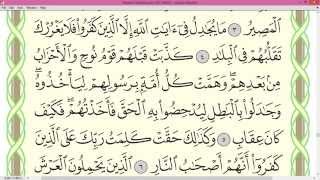 ٱلْمَصِيرُ ٣ مَا يُجَٰدِلُ فِىٓ ءَايَٰتِ ٱللَّهِ إِلَّا ٱلَّذِينَ كَفَرُوا۟ فَلَا يَغْرُرْكَ
تَقَلُّبُهُمْ فِى ٱلْبِلَٰدِ ٤ كَذَّبَتْ قَبْلَهُمْ قَوْمُ نُوحٍ وَٱلْأَحْزَابُ
مِنۢ بَعْدِهِمْ وَهَمَّتْ كُلُّ أُمَّةٍۭ بِرَسُولِهِمْ لِيَأْخُذُوهُ
وَجَٰدَلُوا۟ بِٱلْبَٰطِلِ لِيُدْحِضُوا۟ بِهِ ٱلْحَقَّ فَأَخَذْتُهُمْ فَكَيْفَ
كَانَ عِقَابِ ٥ وَكَذَٰلِكَ حَقَّتْ كَلِمَتُ رَبِّكَ عَلَى ٱلَّذِينَ
كَفَرُوٓا۟ أَنَّهُمْ أَصْحَٰبُ ٱلنَّارِ ٦ ٱلَّذِينَ يَحْمِلُونَ ٱلْعَرْشَ